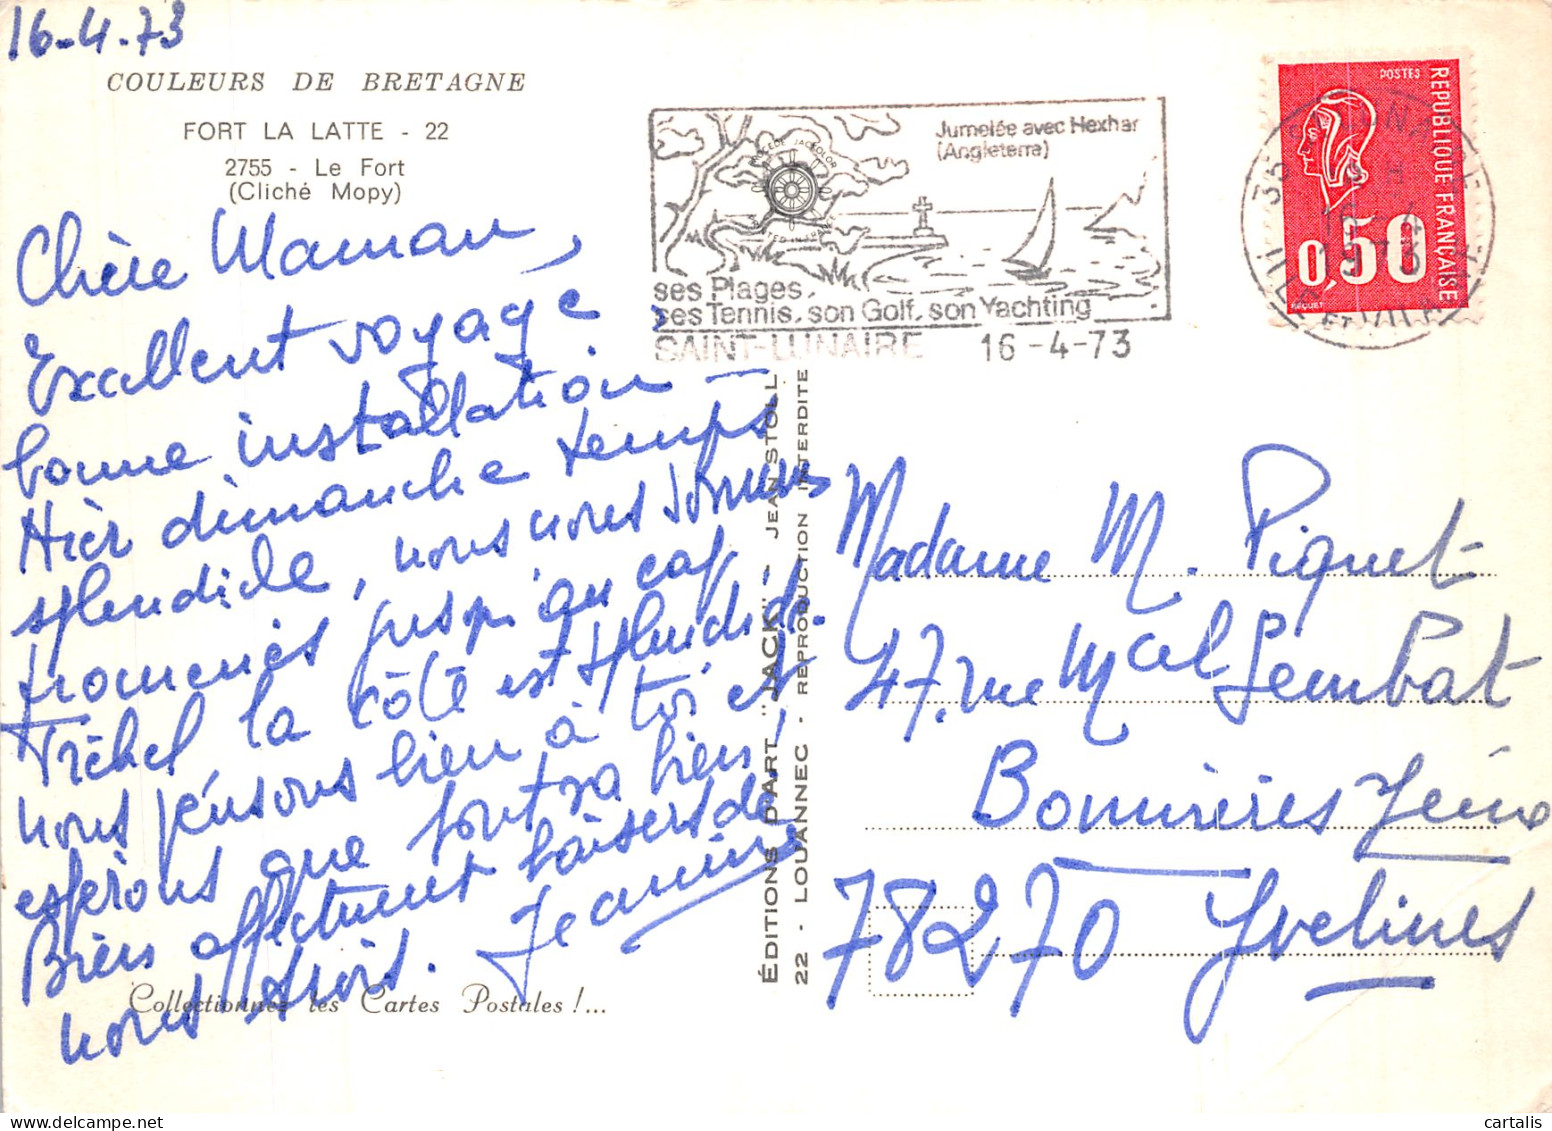 16-4-73
COULEURS DE BRETAGNE
FORT LA LATTE - 22
2755 - Le Fort
(Cliché Mopy)
Chère Maman,
Excellent voyage
bonne installation —
Hier dimanche temps
splendide, nous nous sommes
promenés jusqu'au cap
Fréhel la côte est splendide.
nous pensons bien à toi et
espérons que tout va bien,
Bien affectueusement baisers de
nous trois. Jeannine
Collectionnez les Cartes Postales !...
Jumelée avec Hexham
(Angleterre)
ses Plages,
ses Tennis, son Golf, son Yachting
SAINT-LUNAIRE 16-4-73
POSTES
REPUBLIQUE FRANÇAISE
0,50
BEQUET
35
16-4
ILLE ET VILAINE
ÉDITIONS D'ART "JACK" - JEAN STOLL
22 - LOUANNEC - REPRODUCTION INTERDITE
Madame M. Piquet
47, rue Mal Sembat
Bonnières
78270 Yvelines
© cartalis